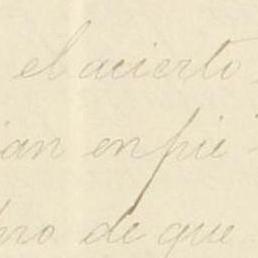 el acierto
ian en pié
bro de que